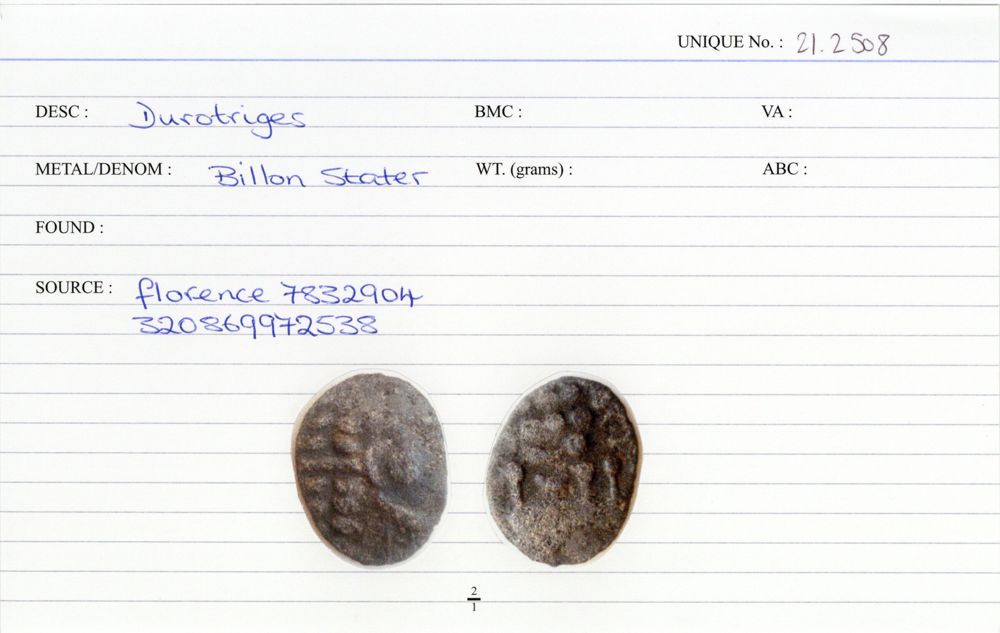 UNIQUE No. : 21.2508
DESC : Durotriges BMC : VA :
METAL/DENOM : Billon Stater WT. (grams) : ABC :
FOUND :
SOURCE : florence 7832904
320869972538
2
1